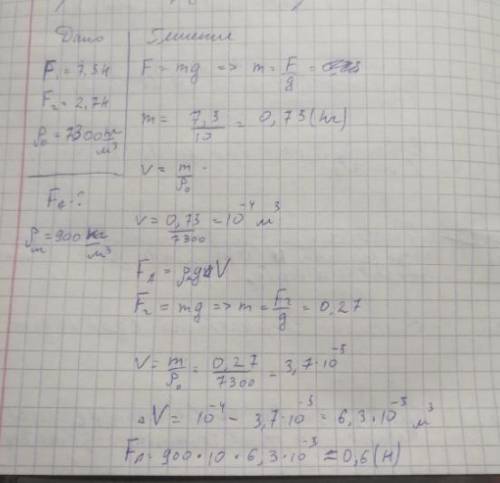 Дано
F₁ = 7,3Н
F₂ = 2,7Н
ρ₀ = 7300 кг/м³
F_A - ?
ρ_m = 900 кг/м³
Решение
F = mg => m = F/g =
m = 7,3/10 = 0,73 (кг)
V = m/ρ₀
V = 0,73/7300 = 10⁻⁴ м³
F_A = ρ_m g ΔV
F₂ = mg => m = F₂/g = 0,27
V = m/ρ₀ = 0,27/7300 = 3,7·10⁻⁵
ΔV = 10⁻⁴ - 3,7·10⁻⁵ = 6,3·10⁻⁵ м³
F_A = 900·10·6,3·10⁻⁵ = 0,6 (Н)